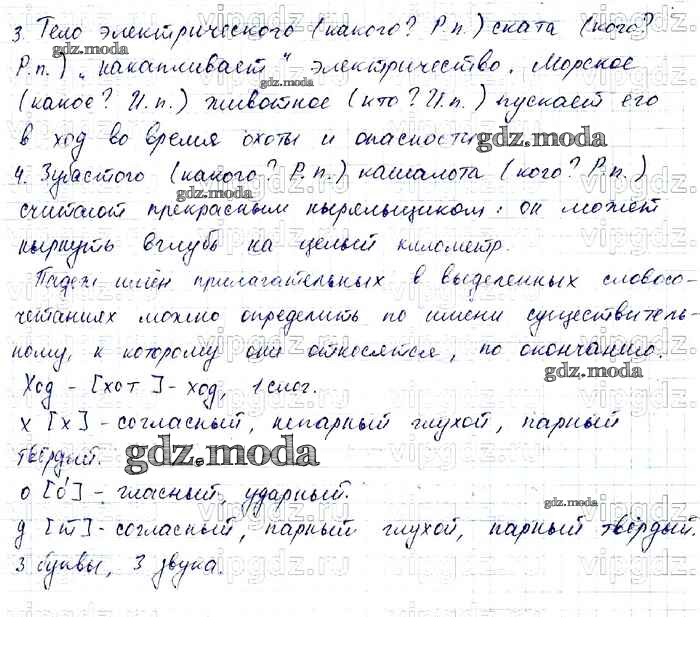 3. Тело электрического (какого? Р.п.) ската (кого?
Р.п.) „накапливает" электричество. Морское
(какое? И.п.) животное (кто? И.п.) пускает его
в ход во время охоты и опасности.
4. Зубастого (какого? Р.п.) кашалота (кого? Р.п.)
считают прекрасным ныряльщиком: он может
нырнуть вглубь на целый километр.
Падеж имён прилагательных в выделенных словосо-
четаниях можно определить по имени существитель-
ному, к которому они относятся, по окончанию.
Ход - [хот] - ход, 1 слог.
х [х] - согласный, непарный глухой, парный
твёрдый.
о [о́] - гласный, ударный.
д [т] - согласный, парный глухой, парный твёрдый.
3 буквы, 3 звука.
gdz.moda
gdz.moda
gdz.moda
gdz.moda
gdz.moda
gdz.moda
vipgdz.ru